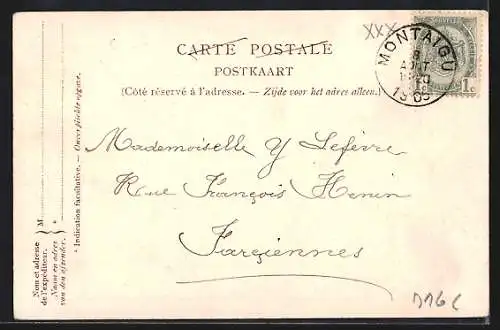 XXX
CARTE POSTALE
POSTKAART
(Côté réservé à l'adresse. — Zijde voor het adres alleen.)
MONTAIGU
8
AOUT
1909
1c 1c
Mademoiselle Y Lefèvre
Rue François Henin
Farciennes
M
*
Nom et adresse
de l'expéditeur.
Naam en adres
van den afzender.
* Indication facultative. — Onverplichte opgave.
D16C